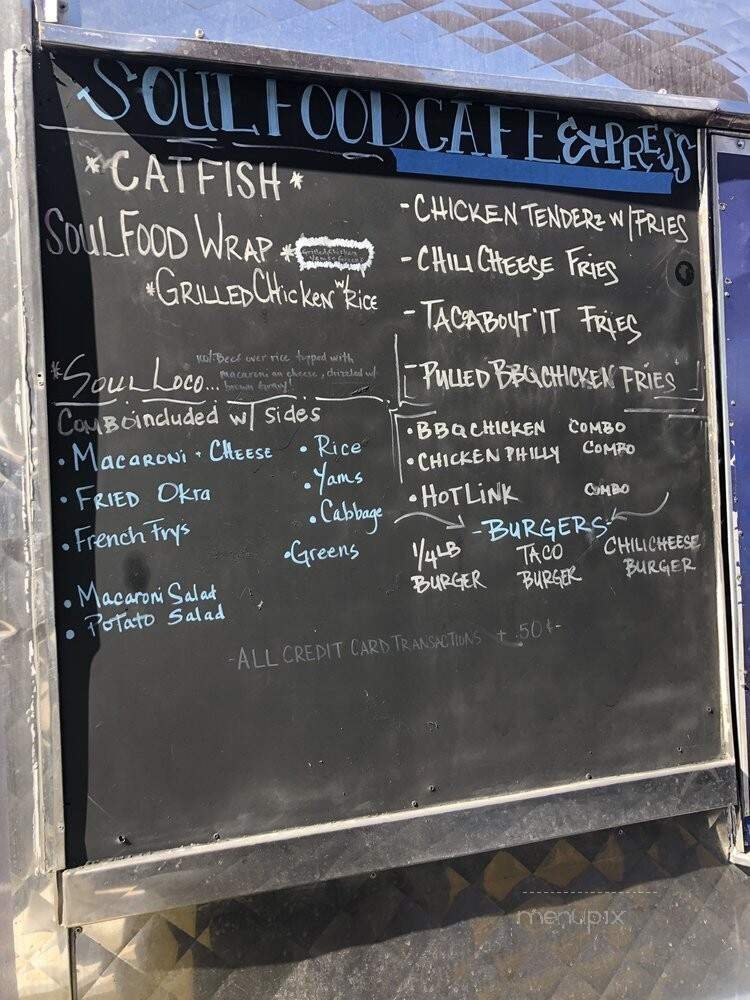 SOULFOOD CAFE EXPRESS
*CATFISH*
SOUL FOOD WRAP *
Grilled Chicken
Yams & Greens
*GRILLED CHICKEN W/ RICE
*SOUL LOCO...
w/: Beef over rice topped with
macaroni an cheese, drizzled w/
brown gravy!
COMBO included w/ sides
• MACARONI + CHEESE
• FRIED OKRA
• French Frys
• Macaroni Salad
• POTATO SALAD
• Rice
• Yams
• Cabbage
• Greens
- CHICKEN TENDERZ W/ FRIES
- CHILI CHEESE FRIES
- TACABOUT'IT FRIES
- PULLED BBQ CHICKEN FRIES
• BBQ CHICKEN COMBO
• CHICKEN PHILLY COMBO
• HOTLINK COMBO
- BURGERS -
1/4 LB BURGER
TACO BURGER
CHILICHEESE BURGER
- ALL CREDIT CARD TRANSACTIONS + .50¢ -
menupix